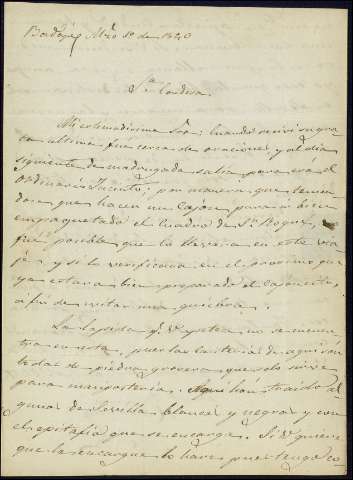 Badajoz Mzo 1º de 1840
Sra Cordera.
Mi estimadisima Sra: cuando recivi su gra
ta ultima fue cerca de oraciones y al dia
siguiente de madrugada salia para esa el
ordinario Jacinto; por manera que tenien
dose que hacer un cajon para ir bien
empaquetado el cuadro de Sn Roque, no
fue posible que lo llevara en este via
je, y si lo verificara en el proximo que
ya estara bien preparado el cajoncito,
a fin de evitar una quiebra.
La lapida qe V. apetece no se encuen
tra en esta, pues las canteras de aqui son
todas de piedra grosera que solo sirve
para mamposteria. Aqui han traido al
gunas de Sevilla blancas y negras y con
el epitafio que se encarga. Si V. quiere
que la encargue lo hare pues tengo co